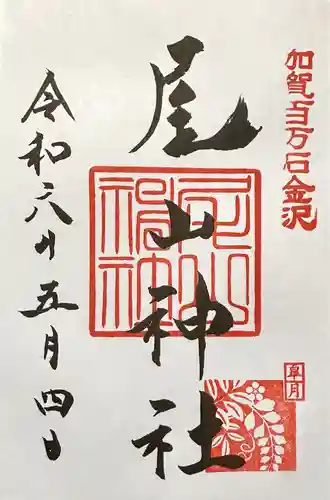 加賀百万石金沢
尾山神社
皐月
令和六年五月四日